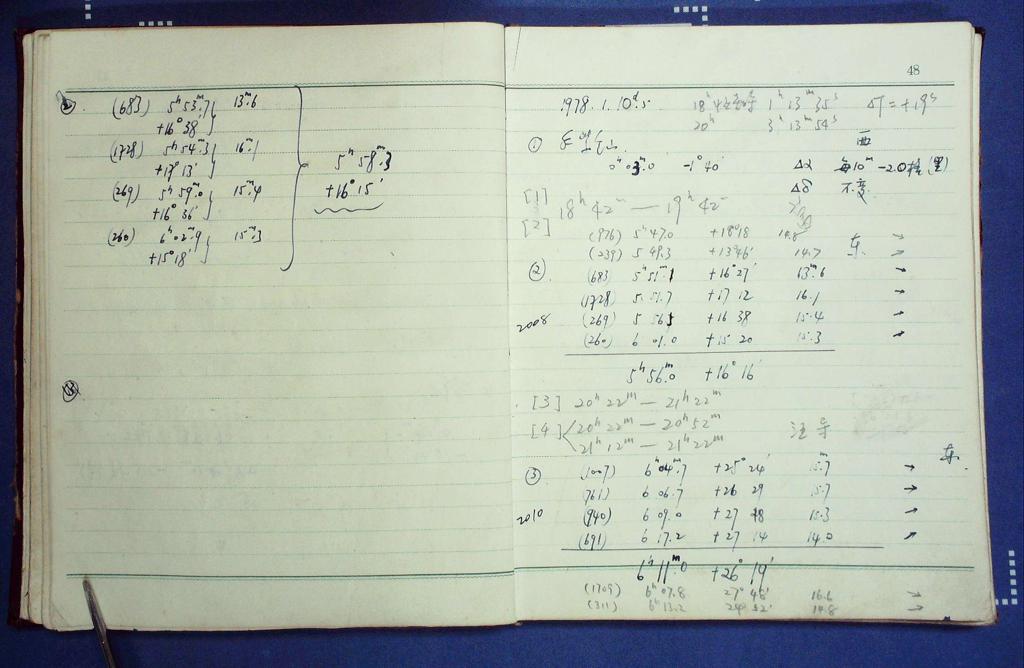 ②. (683) 5ʰ 53ᵐ.7 13ᵐ.6
+16° 38′
(1728) 5ʰ 54ᵐ.3 16ᵐ.1
+17° 13′
(269) 5ʰ 59ᵐ.0 15ᵐ.4
+16° 36′
(260) 6ʰ 02ᵐ.9 15ᵐ.3
+15° 18′
5ʰ 58ᵐ.3
+16° 15′
48
1978. 1. 10ᵈ.5 18ʰ 42 1ʰ 13ᵐ 35ˢ ΔT = +19ˢ
20ʰ 3ʰ 13ᵐ 54ˢ
① 西
0ʰ 03ᵐ.0 -1° 40′ Δα 每10ᵐ -2.0格(里)
Δδ 不变
[1] 18ʰ 42ᵐ — 19ʰ 42ᵐ
[2]
(976) 5ʰ 47.0 +18° 18 14.8 东 →
(239) 5 49.3 +13° 46′ 14.7 →
② (683) 5ʰ 51ᵐ.1 +16° 27′ 13ᵐ.6 →
(1728) 5 51.7 +17 12 16.1 →
2008 (269) 5 56.5 +16 38 15.4 →
(260) 6 01.0 +15 20 15.3 →
5ʰ 56ᵐ.0 +16° 16′
[3] 20ʰ 22ᵐ — 21ʰ 22ᵐ
[4] 20ʰ 22ᵐ — 20ʰ 52ᵐ
21ʰ 12ᵐ — 21ʰ 22ᵐ 注导
③ (1007) 6ʰ 04ᵐ.7 +25° 24′ 15ᵐ.7 → 东.
(761) 6 06.7 +26 29 15.7 →
2010 (940) 6 09.0 +27 18 15.3 →
(691) 6 17.2 +27 14 14.0 →
6ʰ 11ᵐ.0 +26° 19′
(1709) 6ʰ 07.8 27° 48′ 16.6 →
(311) 6ʰ 13.2 24° 52′ 14.8 →